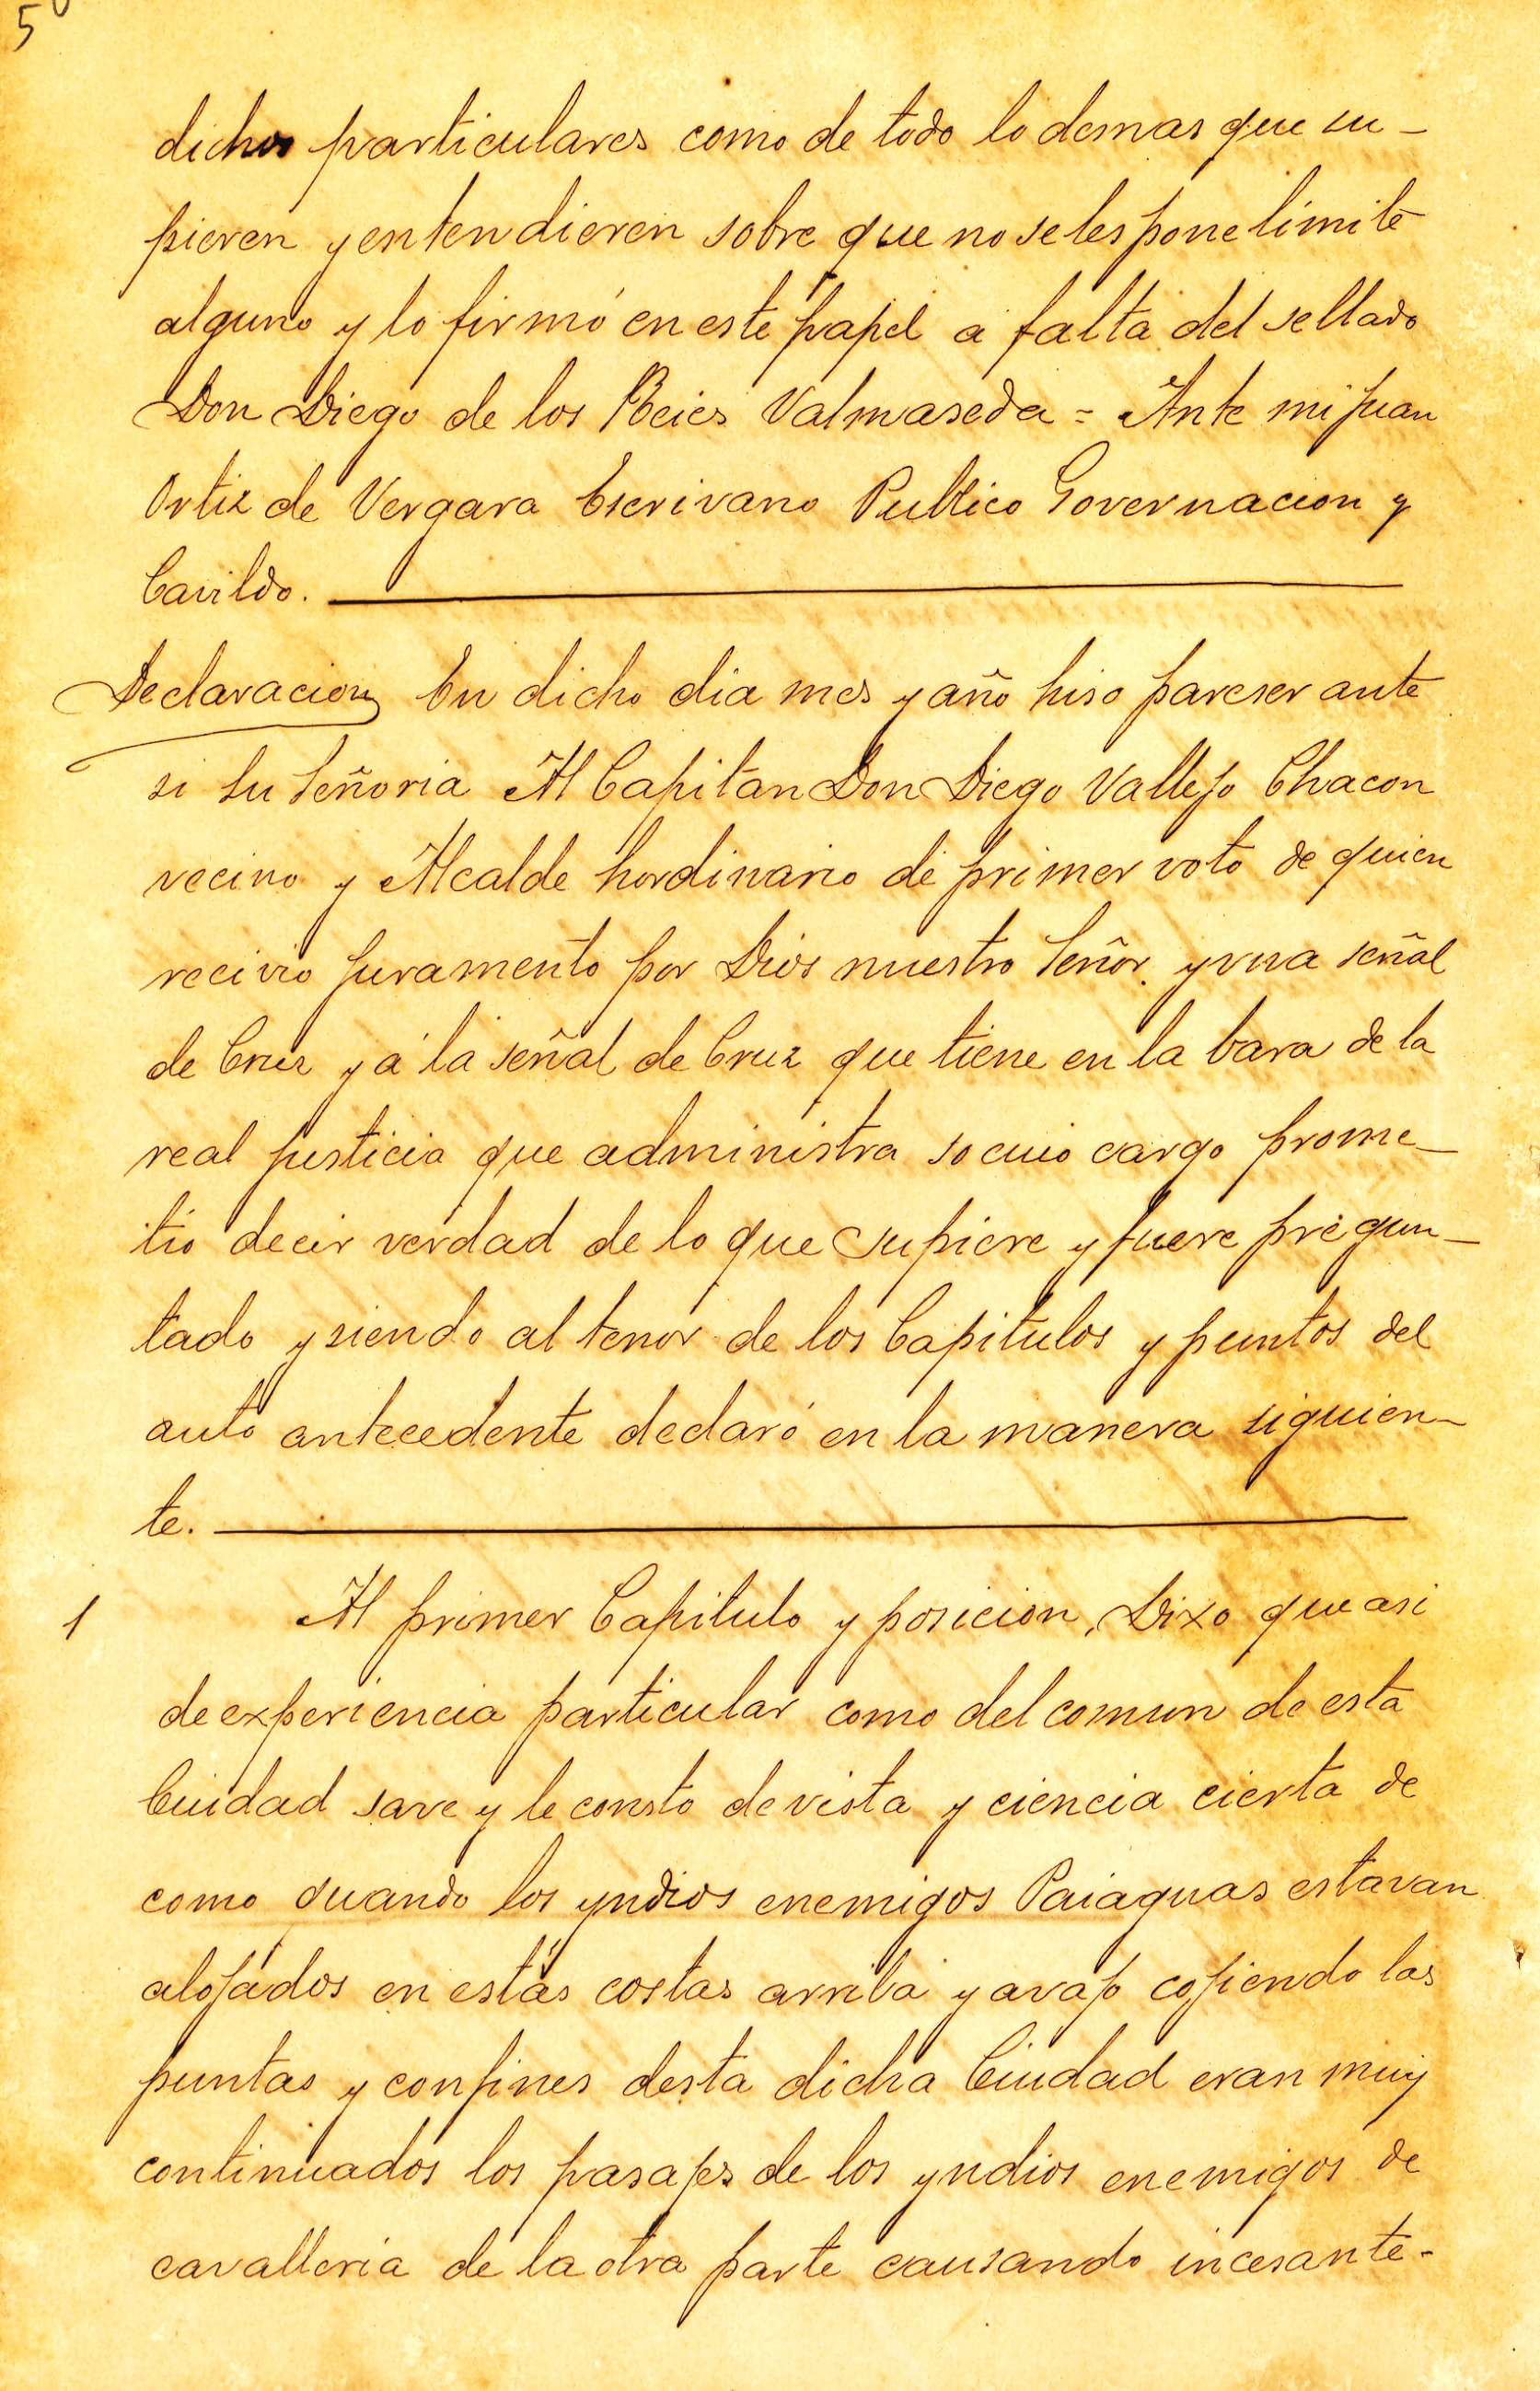 5
dichos particulares como de todo lo demas que su-
pieren y entendieren sobre que no se les pone límite
alguno y lo firmó en este papel a falta del sellado
Don Diego de los Reies Valmaseda = Ante mi Juan
Ortiz de Vergara Escrivano Publico Governacion y
Cavildo.
Declaracion En dicho dia mes y año hiso pareser ante
si su Señoria Al Capitan Don Diego Vallejo Chacon
vecino y Alcalde hordinario de primer voto de quien
recivio juramento por Dios nuestro Señor. y vna señal
de Cruz y á la señal de Cruz que tiene en la bara de la
real justicia que administra so cuio cargo prome-
tió decir verdad de lo que supiere y fuere pregun-
tado y siendo al tenor de los Capitulos y puntos del
auto antecedente declaró en la manera siguien-
te.
1 Al primer Capitulo y posicion, Dixo que asi
de experiencia particular como del comun de esta
Ciudad save y le consto de vista y ciencia cierta de
como quando los yndios enemigos Paiaguas estavan
alojados en estas costas arriba y avajo cojiendo las
puntas y confines desta dicha Ciudad eran muy
continuados los pasajes de los yndios enemigos de
cavalleria de la otra parte causando incesante-